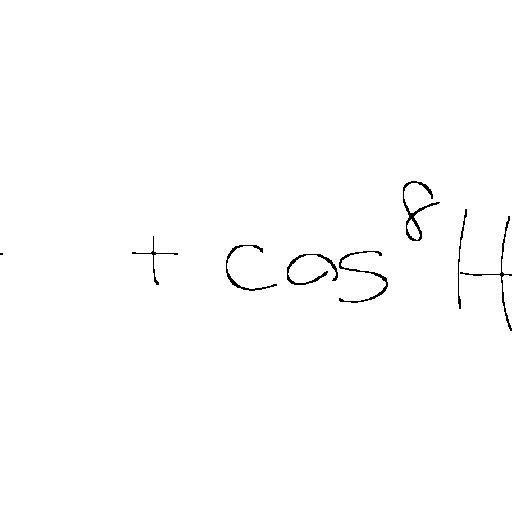 + cos^8 H